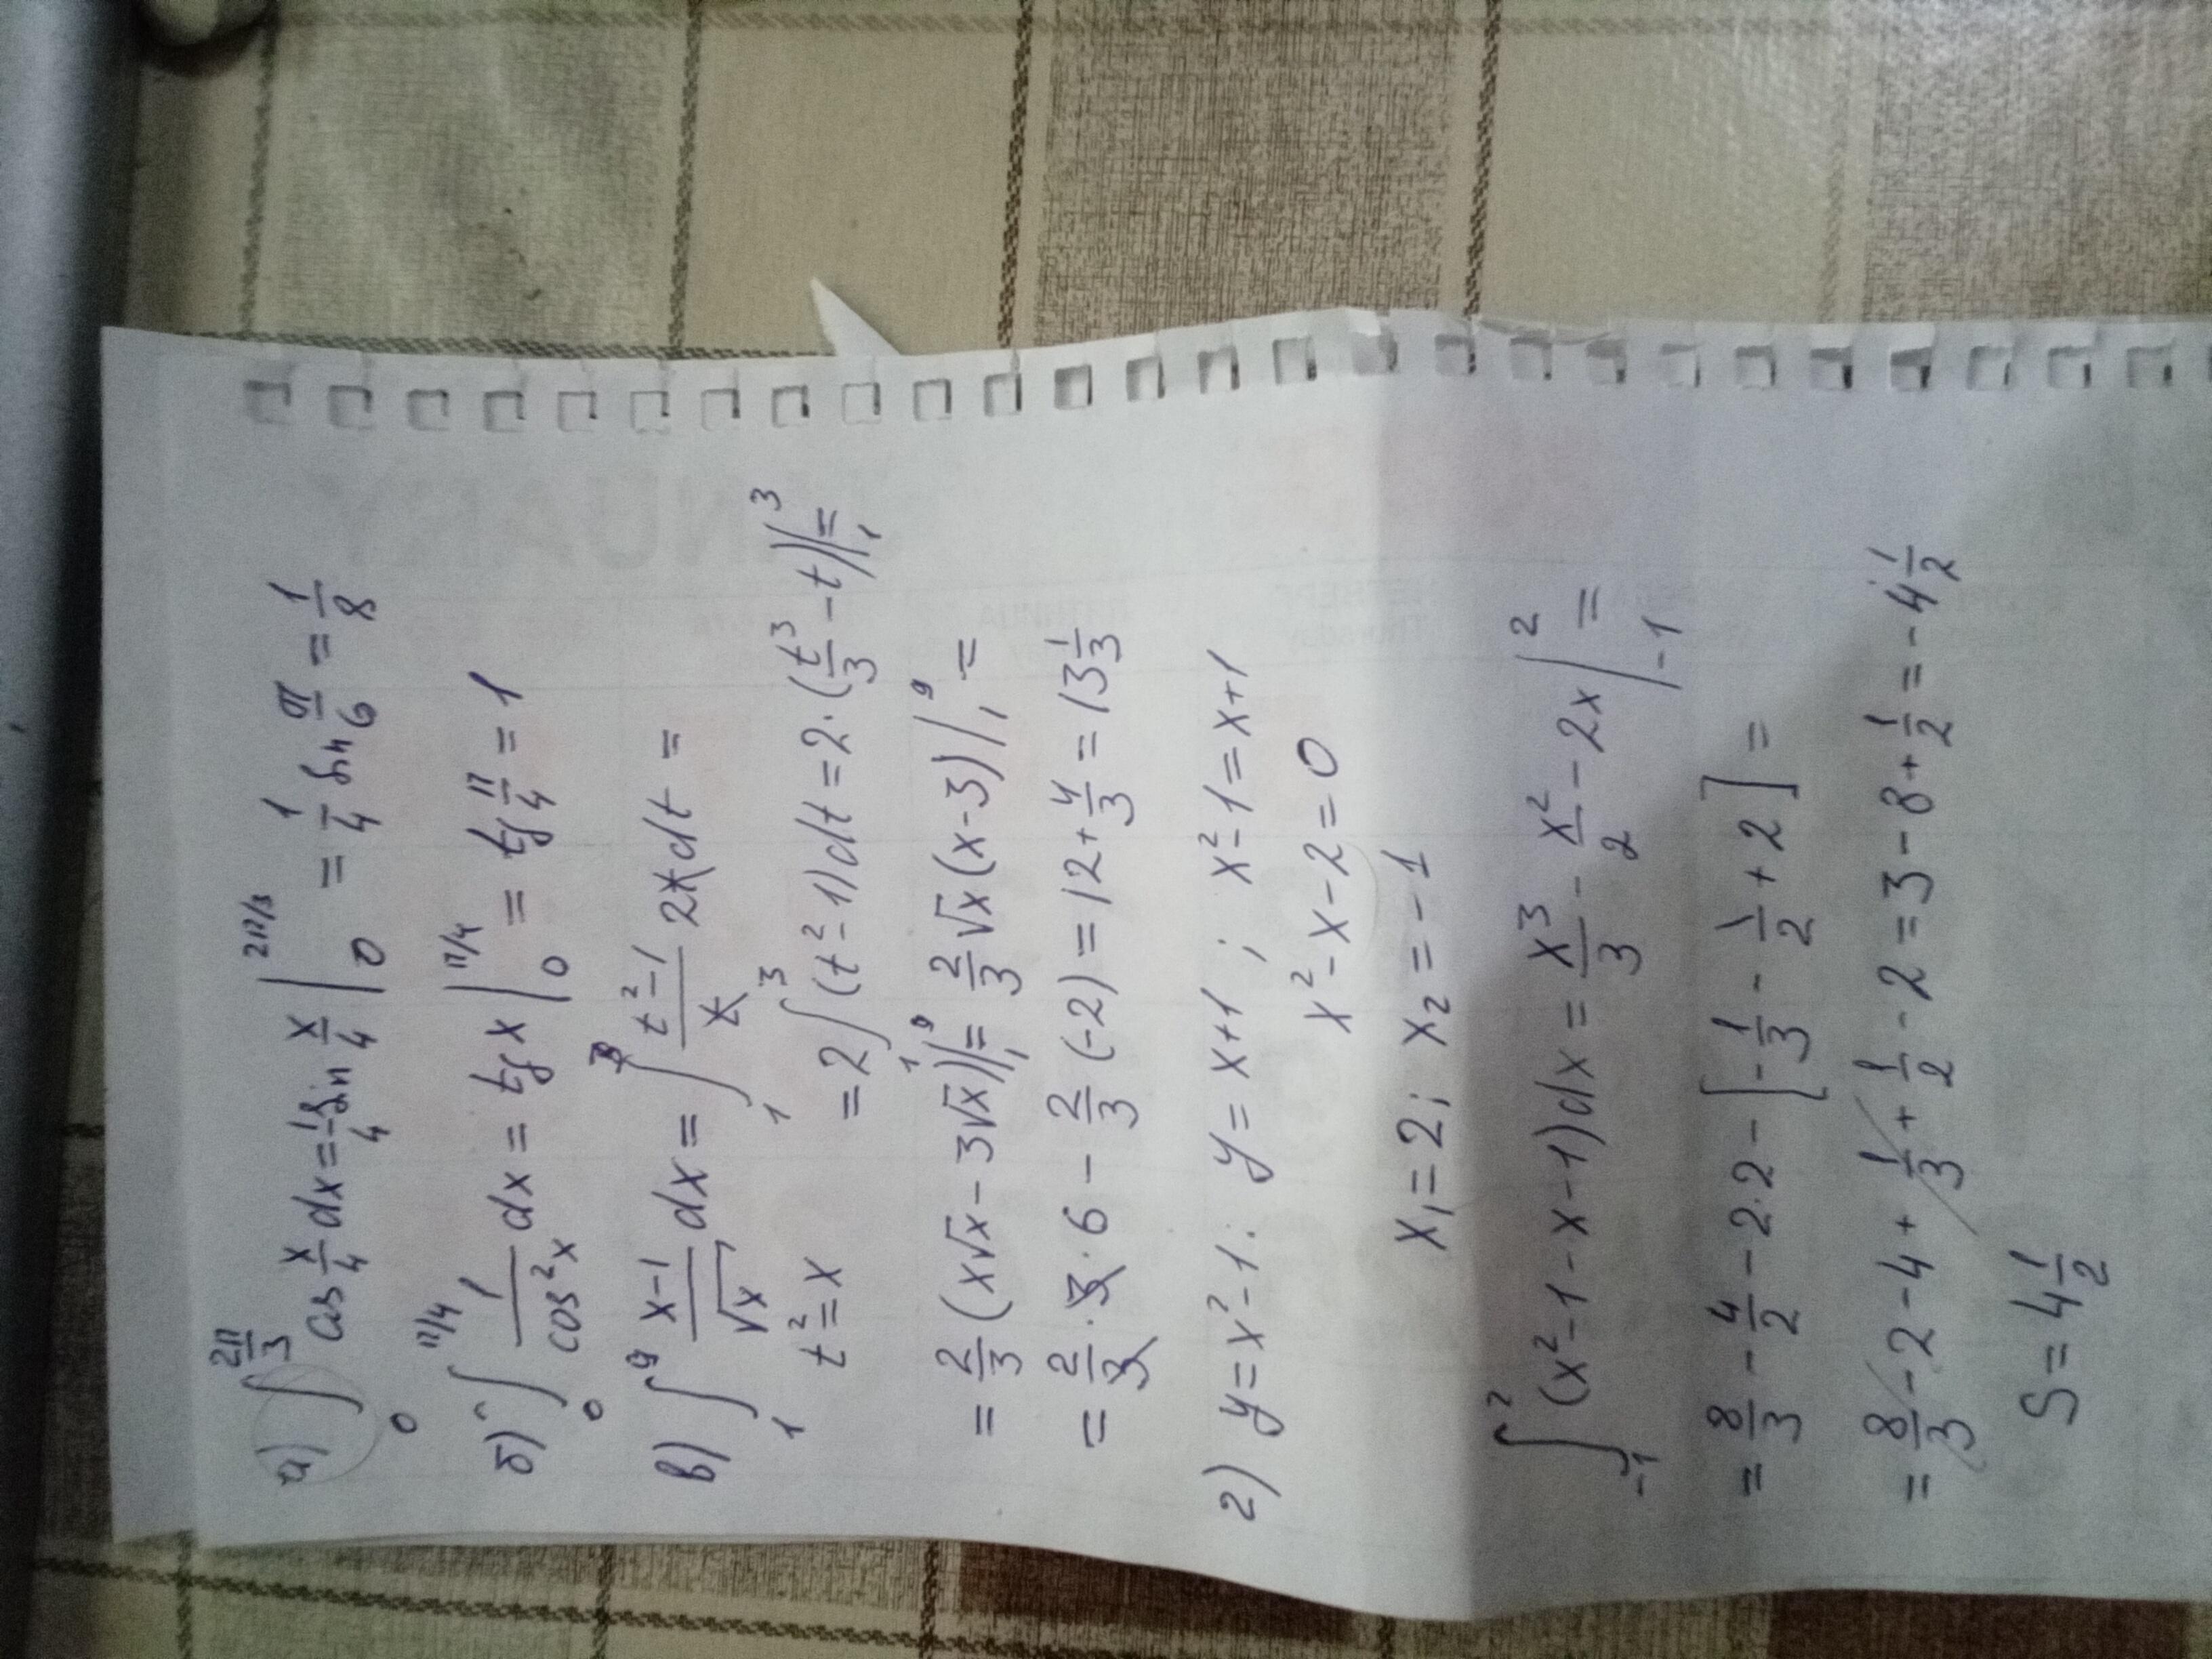 а) ∫₀^{2π/3} cos x/4 dx = 1/4 sin x/4 |₀^{2π/3} = 1/4 sin π/6 = 1/8
б) ∫₀^{π/4} 1/cos²x dx = tg x |₀^{π/4} = tg π/4 = 1
в) ∫₁⁹ x-1/√x dx = ∫₁³ t²-1/t 2t dt =
t² = x = 2 ∫₁³ (t²-1) dt = 2·(t³/3 - t)|₁³ =
= 2/3 (x√x - 3√x)|₁⁹ = 2/3 √x (x-3)|₁⁹ =
= 2/3 · 3 · 6 - 2/3 (-2) = 12 + 4/3 = 13 1/3
2) y = x² - 1 : y = x+1 ; x² - 1 = x+1
x² - x - 2 = 0
x₁ = 2; x₂ = -1
∫₋₁² (x² - 1 - x - 1) dx = x³/3 - x²/2 - 2x |₋₁² =
= 8/3 - 4/2 - 2·2 - [-1/3 - 1/2 + 2] =
= 8/3 - 2 - 4 + 1/3 + 1/2 - 2 = 3 - 8 + 1/2 = -4 1/2
S = 4 1/2